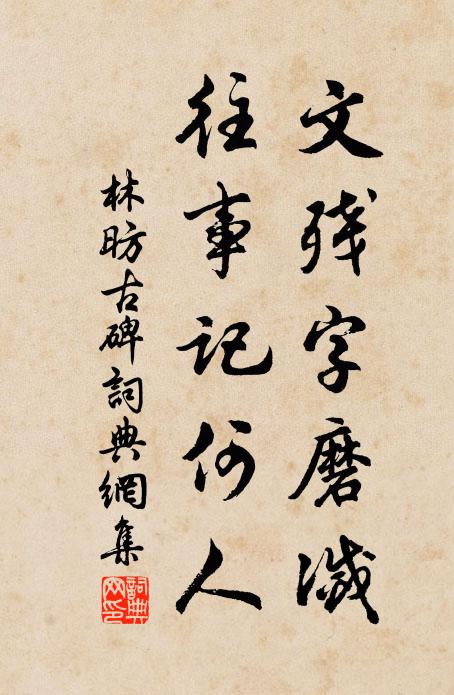 文残字磨滅
往事記何人
林昉古碑詞典網集
詞典網印